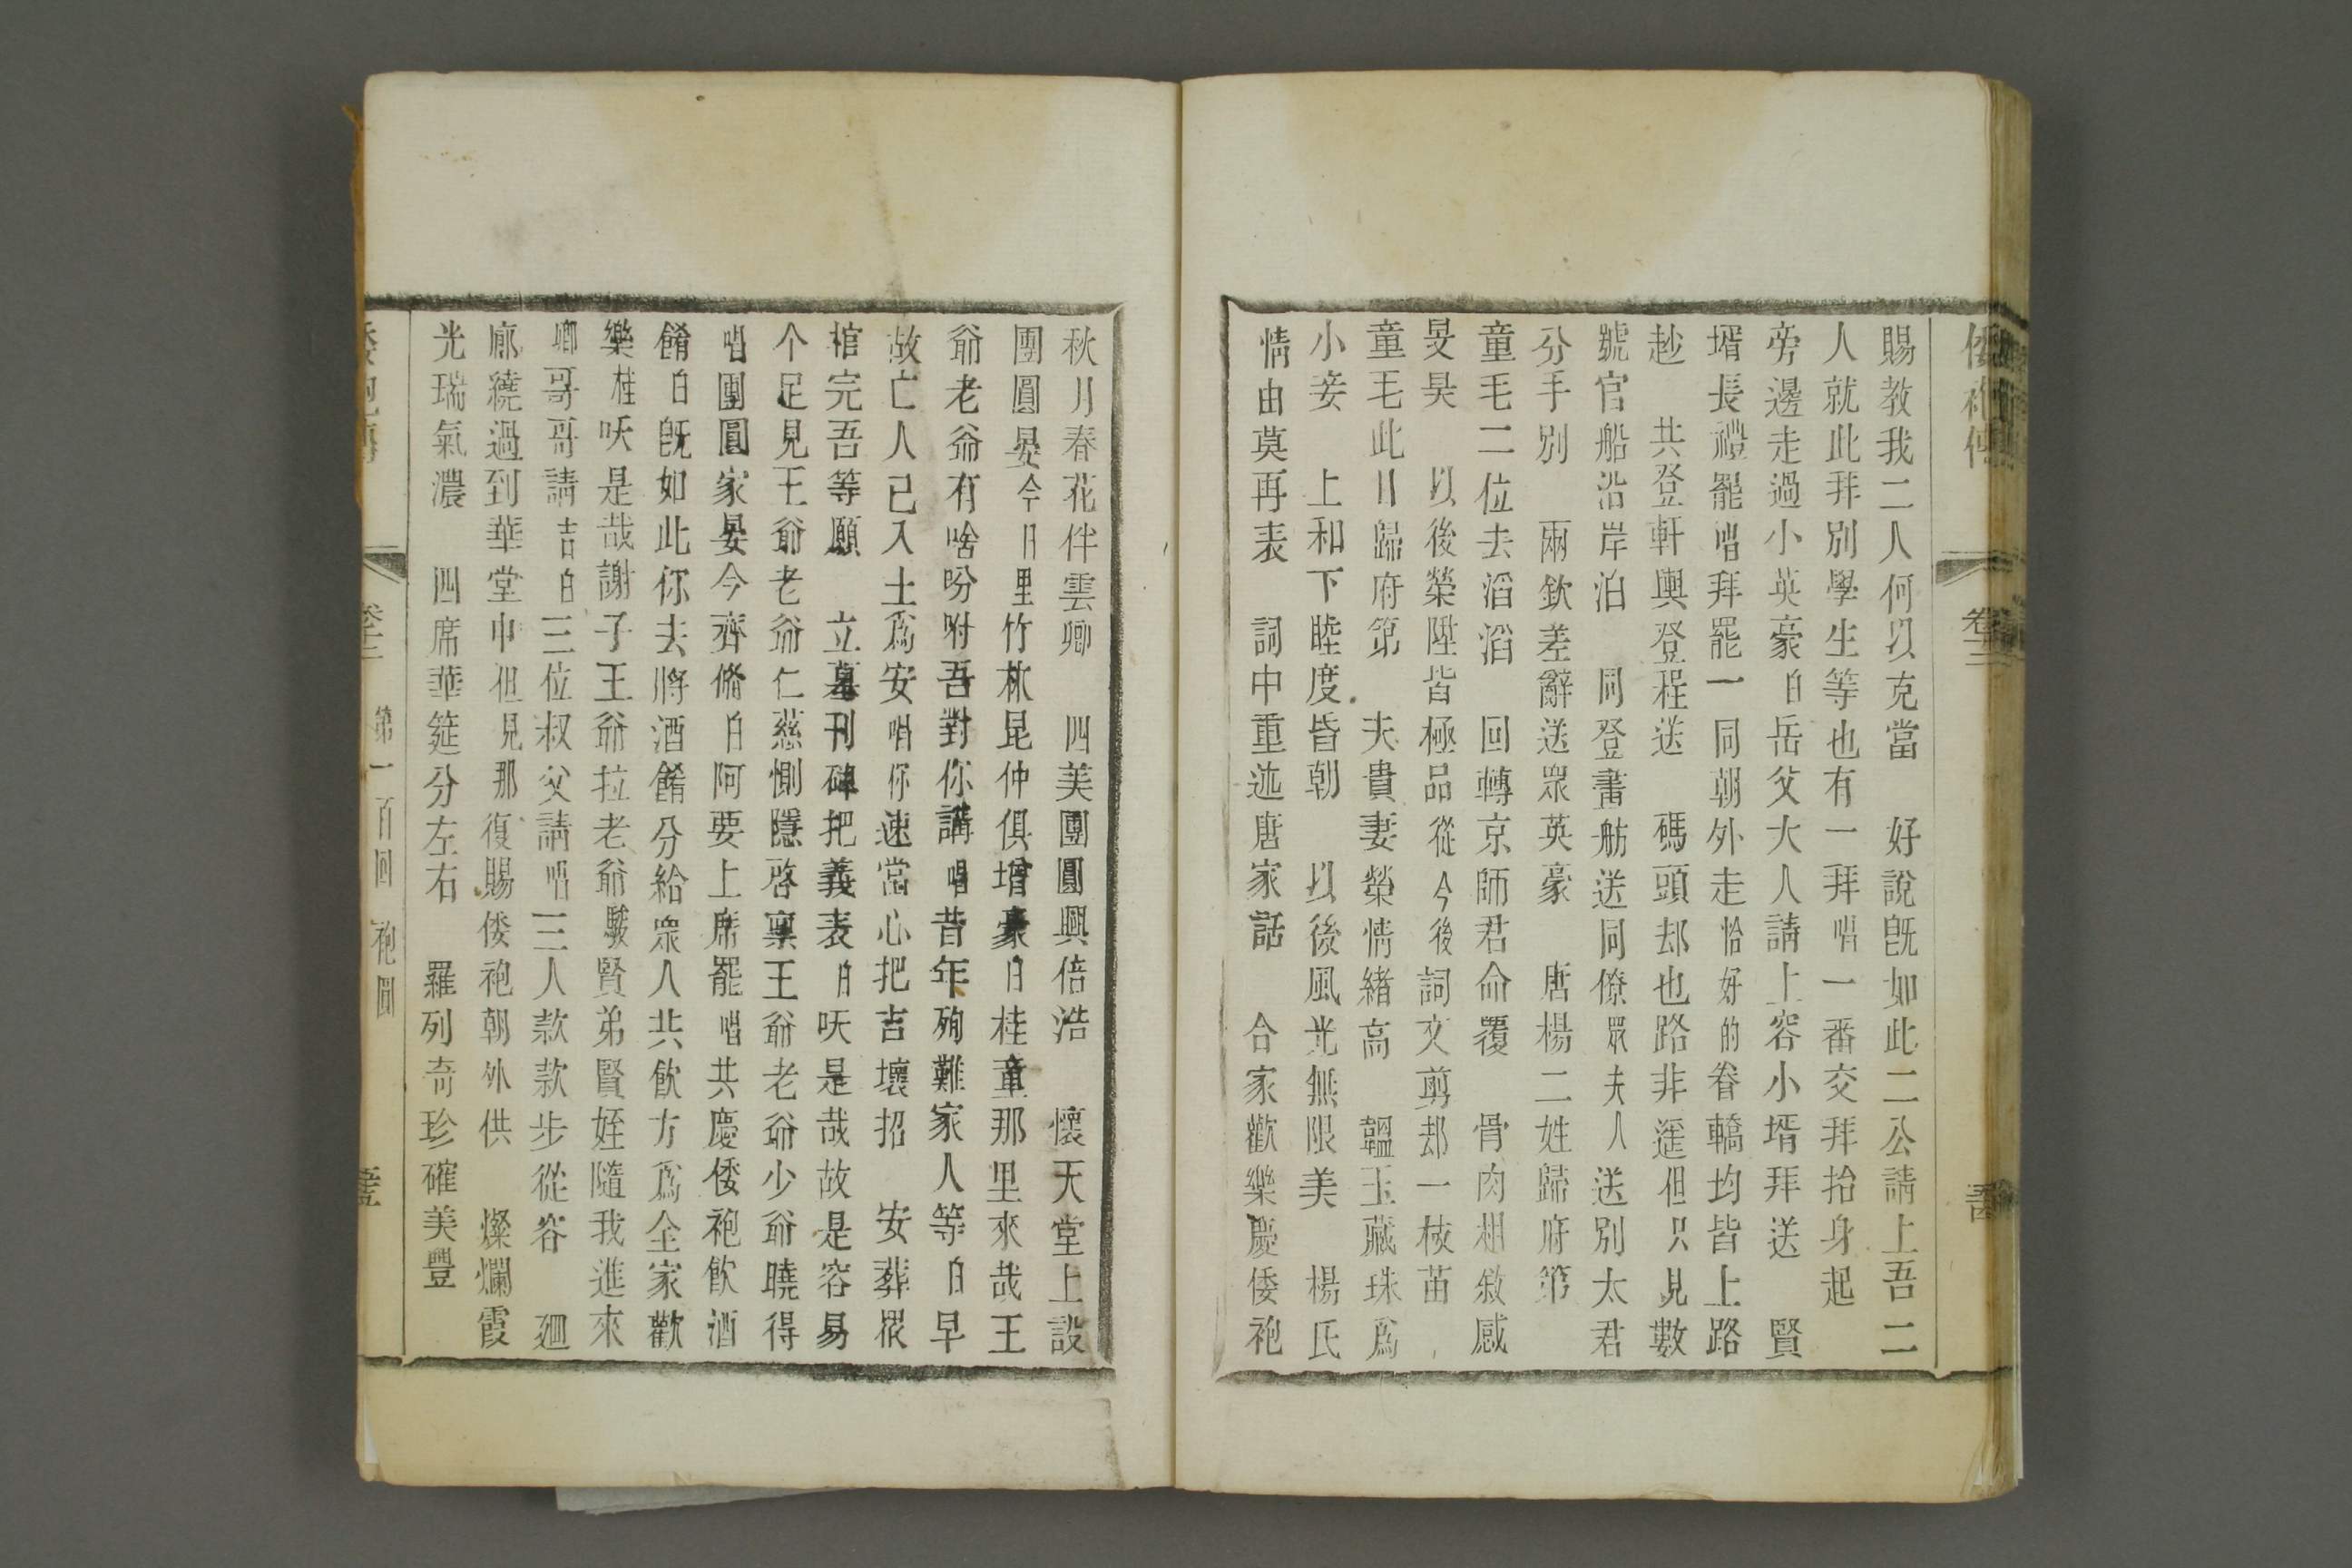 倭袍傳 卷十二
賜教我二人何以克當 好說旣如此二公請上吾二
人就此拜別學生等也有一拜唱一番交拜抬身起
旁邊走過小英豪白岳父大人請上容小壻拜送 賢
壻長禮罷唱拜罷一同朝外走恰好的眷轎均皆上路
赸 共登軒輿登程送 碼頭却也路非遥但只見數
號官船沿岸泊 同登畫舫送同僚眾夫人送別太君
分手別 兩欽差辭送眾英豪 唐楊二姓歸府第
童毛二位去滔滔 回轉京師君命覆 骨肉相敘感
旻昊 以後榮陞皆極品從今後詞文剪却一枝苗
童毛此日歸府第 夫貴妻榮情緒高 韞玉藏珠爲
小妾 上和下睦度昏朝 以後風光無限美 楊氏
情由莫再表 詞中重迹唐家話 合家歡樂慶倭袍
秋月春花伴雲卿 四美團圓興倍浩 懷天堂上設
團圓晏今日里竹林昆仲俱增豪白桂童那里來哉王
爺老爺有啥吩咐吾對你講唱昔年殉難家人等白早
故亡人已入土爲安唱你速當心把吉壤招 安葬衆
棺完吾等願 立墓刊碑把義表白呋是哉故是容易
个足見王爺老爺仁慈惻隱啓稟王爺老爺少爺曉得
唱團圓家晏今齊備白阿要上席罷唱共慶倭袍飲酒
餚白旣如此你去將酒餚分給眾人共飲方爲全家歡
樂桂呋是哉謝子王爺拉老爺駿賢弟賢姪隨我進來
卿哥哥請吉白三位叔父請唱一三人款款步從容 廻
廊繞過到華堂中但見那復賜倭袍朝外供 燦爛霞
光瑞氣濃 四席華筵分左右 羅列奇珍確美豐
卷十二 第一百回 袍圓